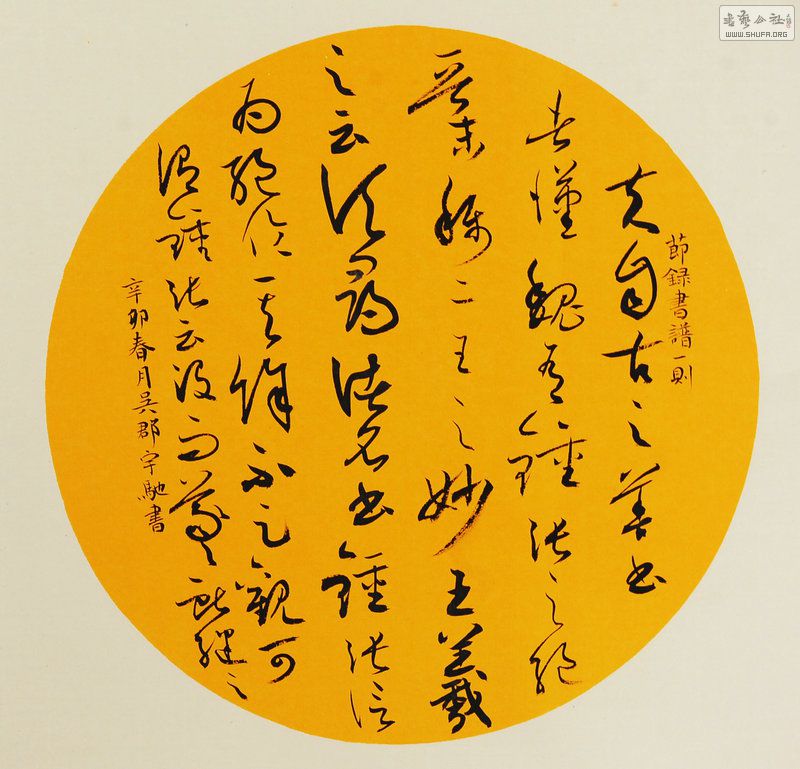 夫自古之善書
節録書譜一則
者漢魏有鍾張之絕
晉末稱二王之妙王羲
之云頃尋諸名書鍾張信
為絕倫其餘不足觀可
謂鍾張云沒而羲獻繼之
辛卯春月吳郡宇馳書
書藝公社
WWW.SHUFA.ORG